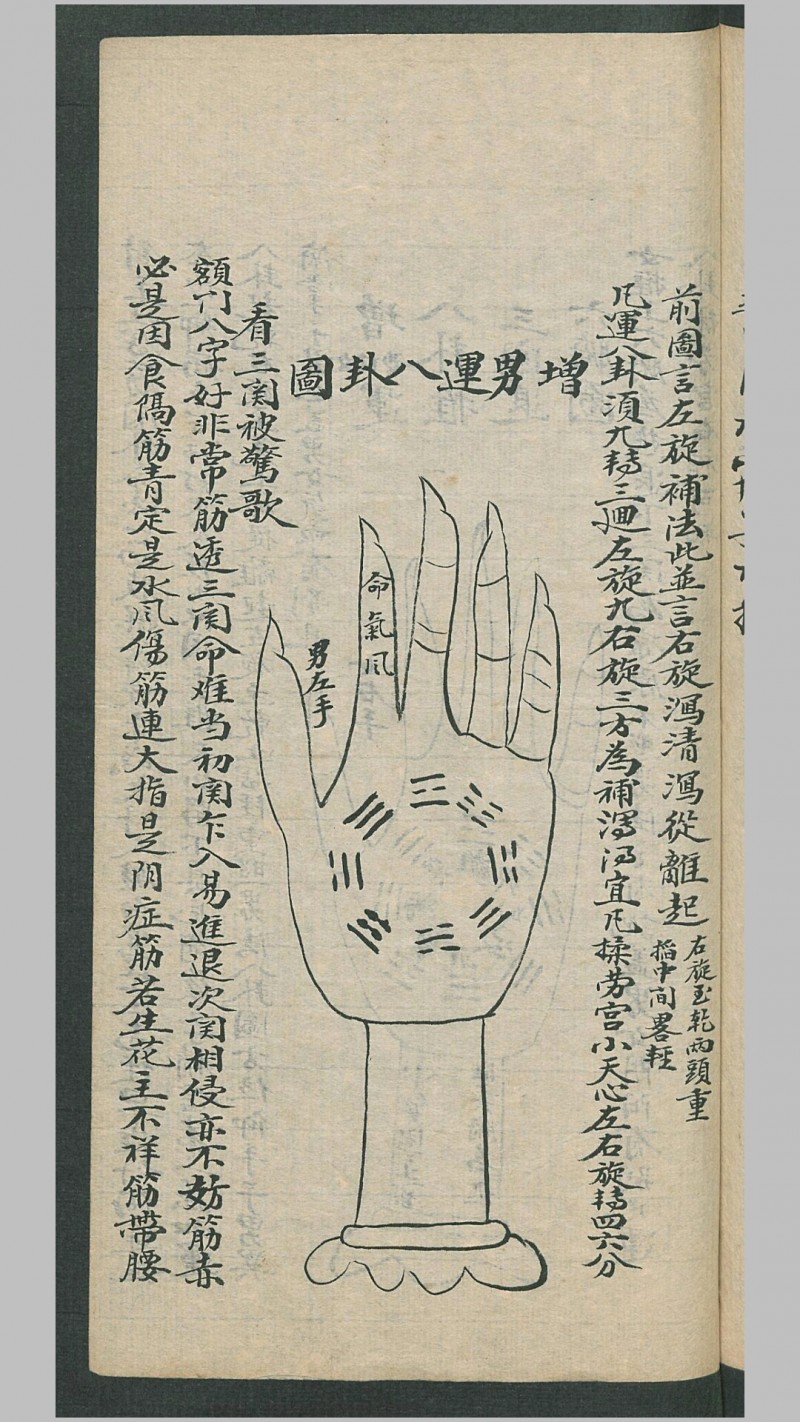 前圖言左旋補法此並言右旋瀉清瀉從離起
右旋至乾兩頭重
掐中間畧輕
凡運八卦須九轉三迴左旋九右旋三方為補瀉得宜凡揉劳宫小天心左右旋轉四六分
增男運八卦圖
命氣風
男左手
看三関被驚歌
額门八字好非常筋透三関命难当初関乍入易進退次関相侵亦不妨筋赤
必是因食隔筋青定是水风傷筋連大指是阴症筋若生花主不祥筋帶腰